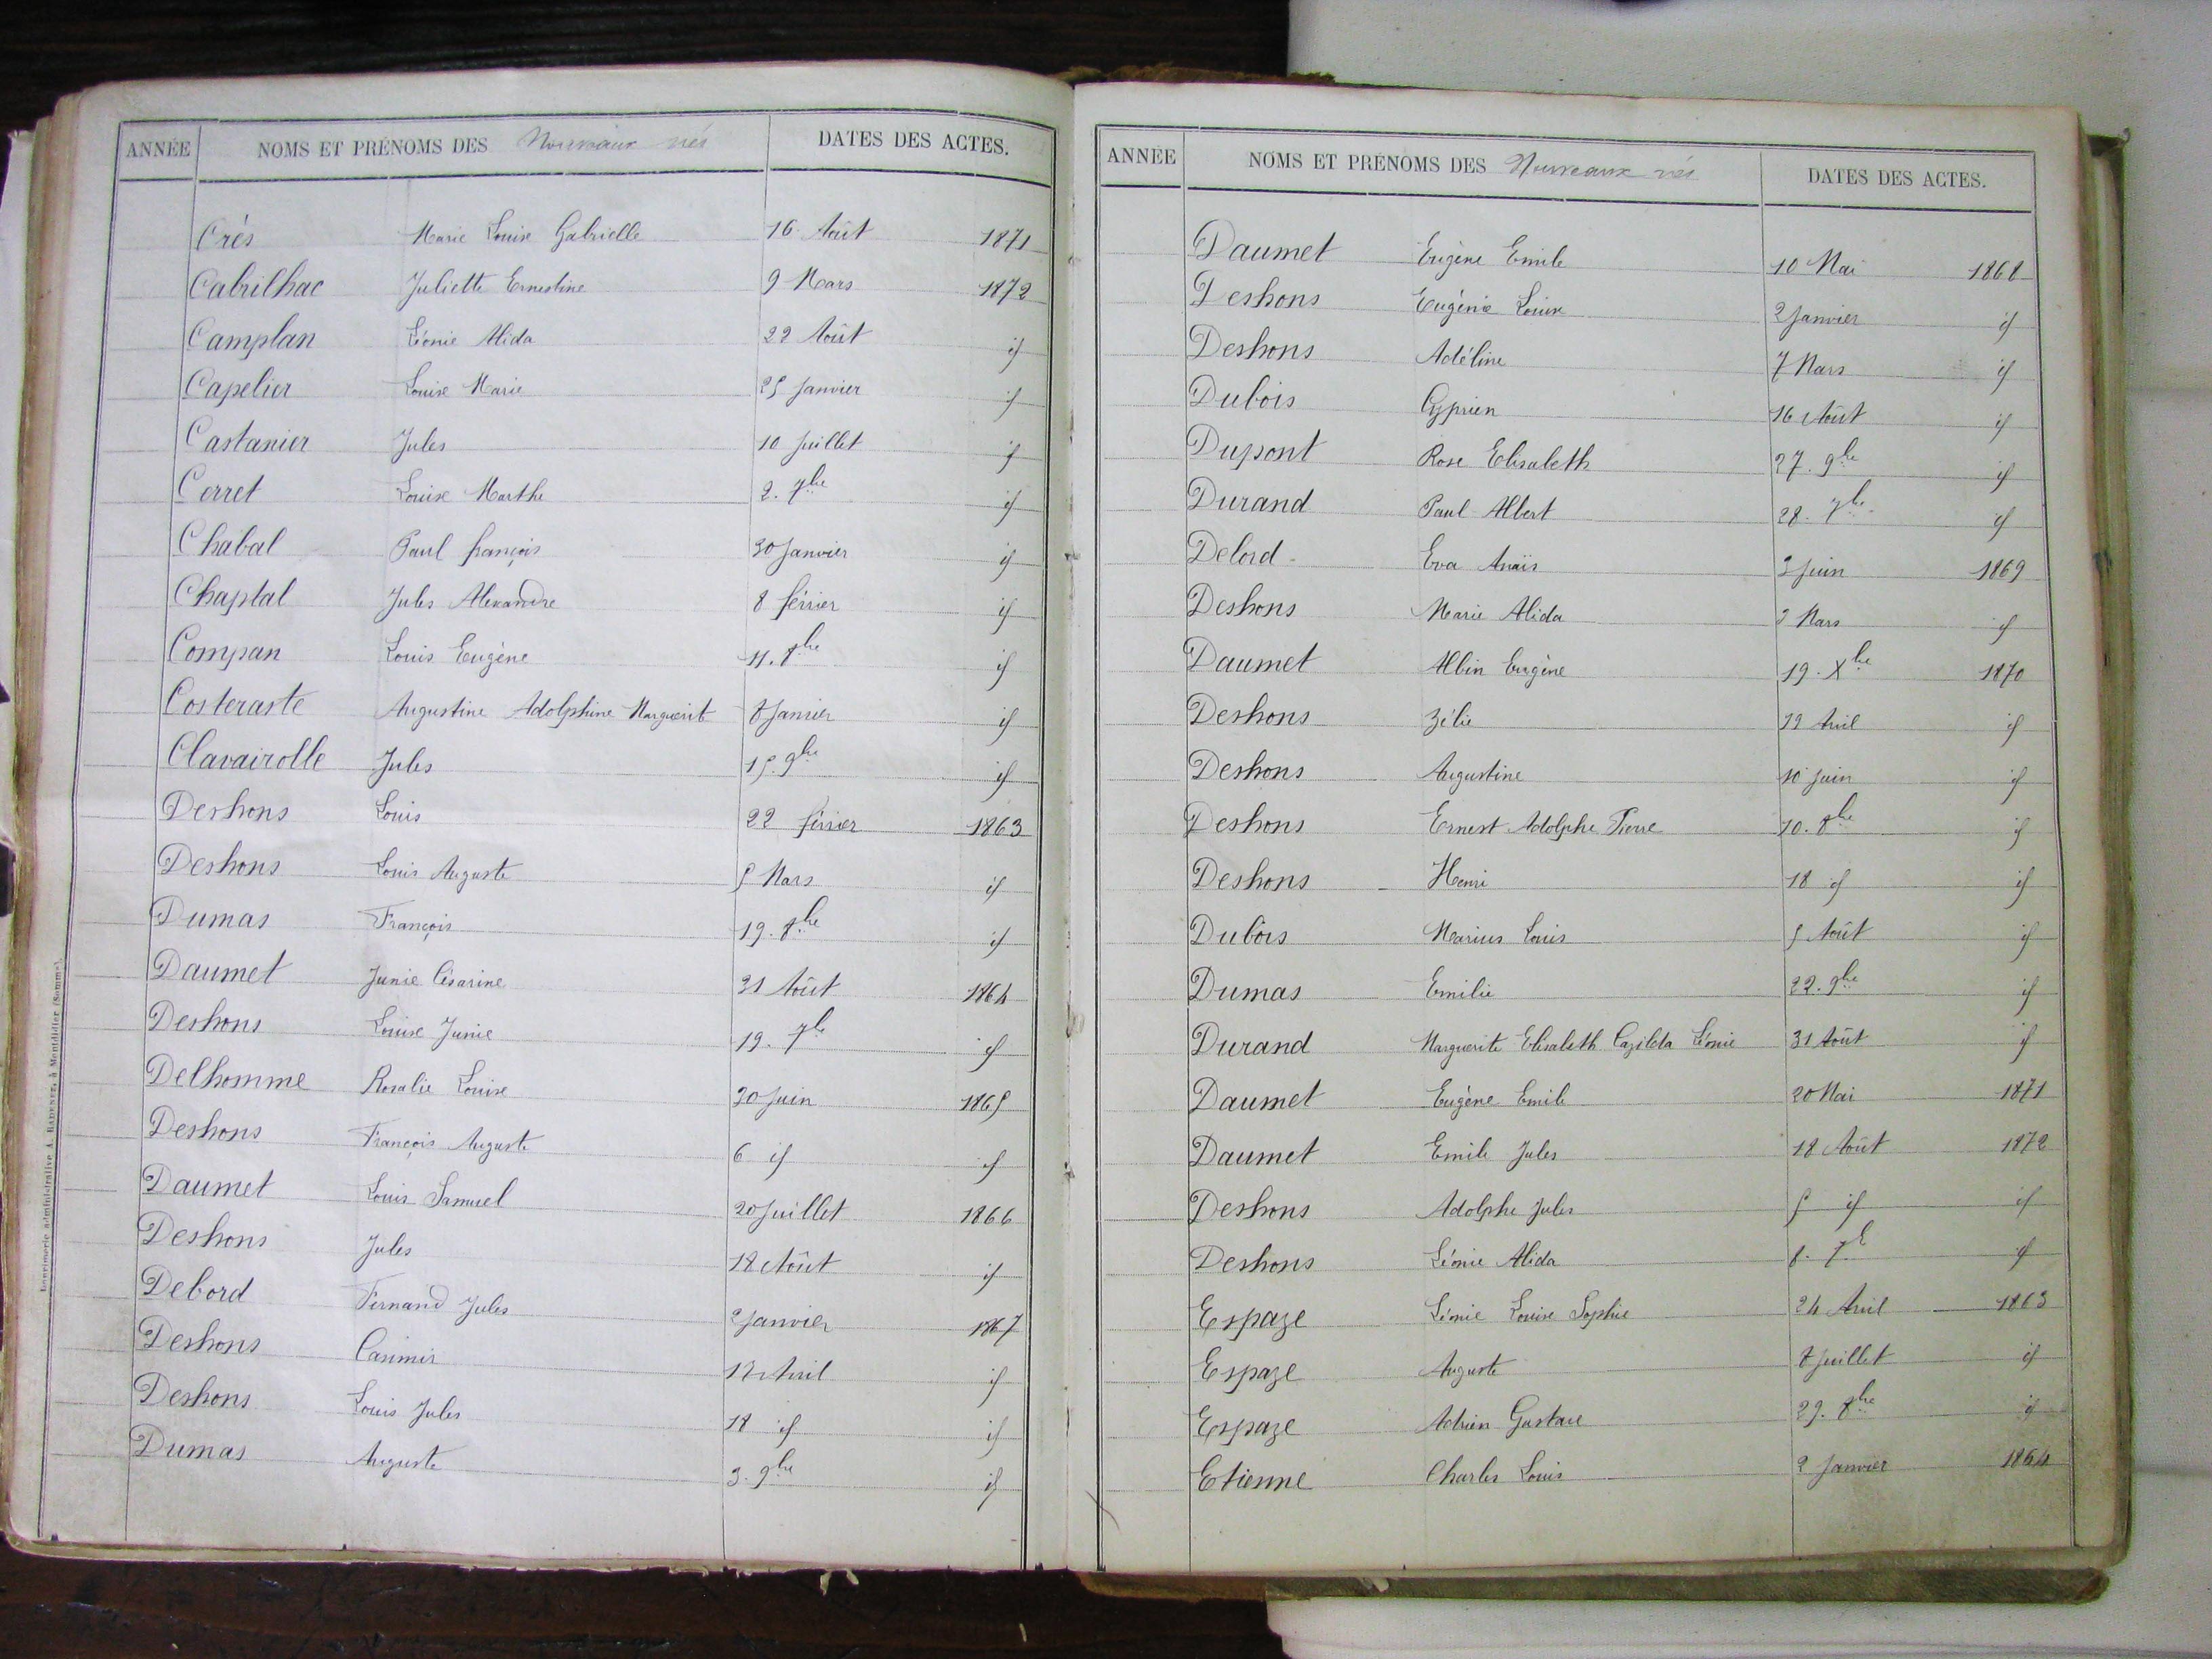 ANNÉE NOMS ET PRÉNOMS DES Nouveaux nés DATES DES ACTES.
Crés Marie Louise Gabrielle 16 Août 1871
Cabrilhac Juliette Ernestine 9 Mars 1872
Camplan Léonie Alida 22 Août id
Capelier Louise Marie 25 Janvier id
Castanier Jules 10 Juillet id
Cerret Louise Marthe 2. 7bre id
Chabal Paul françois 30 Janvier id
Chaptal Jules Alexandre 8 février id
Compan Louis Eugène 11. 8bre id
Costeraste Augustine Adolphine Marguerite 8 Janvier id
Clavairolle Jules 15. 9bre id
Deshons Louis 22 février 1863
Deshons Louis Auguste 5 Mars id
Dumas François 19. 8bre id
Daumet Junie Césarine 31 Août 1864
Deshons Louise Junie 19. 7bre id
Delhomme Rosalie Louise 30 Juin 1865
Deshons François Auguste 6 id id
Daumet Louis Samuel 20 Juillet 1866
Deshons Jules 18 Août id
Debord Fernand Jules 2 Janvier 1867
Deshons Casimir 12 Avril id
Deshons Louis Jules 18 id id
Dumas Auguste 3. 9bre id
Imprimerie administrative A. RADENEZ, à Montdidier (Somme).
ANNÉE NOMS ET PRÉNOMS DES Nouveaux nés DATES DES ACTES.
Daumet Eugène Emile 10 Mai 1868
Deshons Eugénie Louise 2 Janvier id
Deshons Adéline 7 Mars id
Dubois Cyprien 16 Août id
Dupont Rose Elisabeth 27. 9bre id
Durand Paul Albert 28. 7bre id
Delord Eva Anaïs 2 Juin 1869
Deshons Marie Alida 3 Mars id
Daumet Albin Eugène 19. Xbre 1870
Deshons Zélie 19 Avril id
Deshons Augustine 10 Juin id
Deshons Ernest Adolphe Pierre 10. 8bre id
Deshons Henri 18 id id
Dubois Marius Louis 5 Août id
Dumas Emilie 22. 9bre id
Durand Marguerite Elisabeth Cazilda Léonie 31 Août id
Daumet Eugène Emile 20 Mai 1871
Daumet Emile Jules 18 Août 1872
Deshons Adolphe Jules 5 id id
Deshons Léonie Alida 8. 7b id
Espaze Léonie Louise Sophie 24 Avril 1863
Espaze Auguste 8 Juillet id
Espaze Adrien Gustave 29. 8bre id
Etienne Charles Louis 2 Janvier 1864